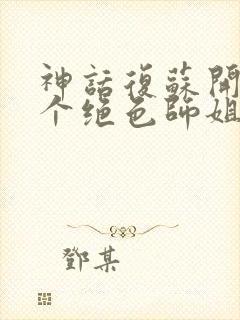 神話復蘇開
个绝色師姐
鄧某